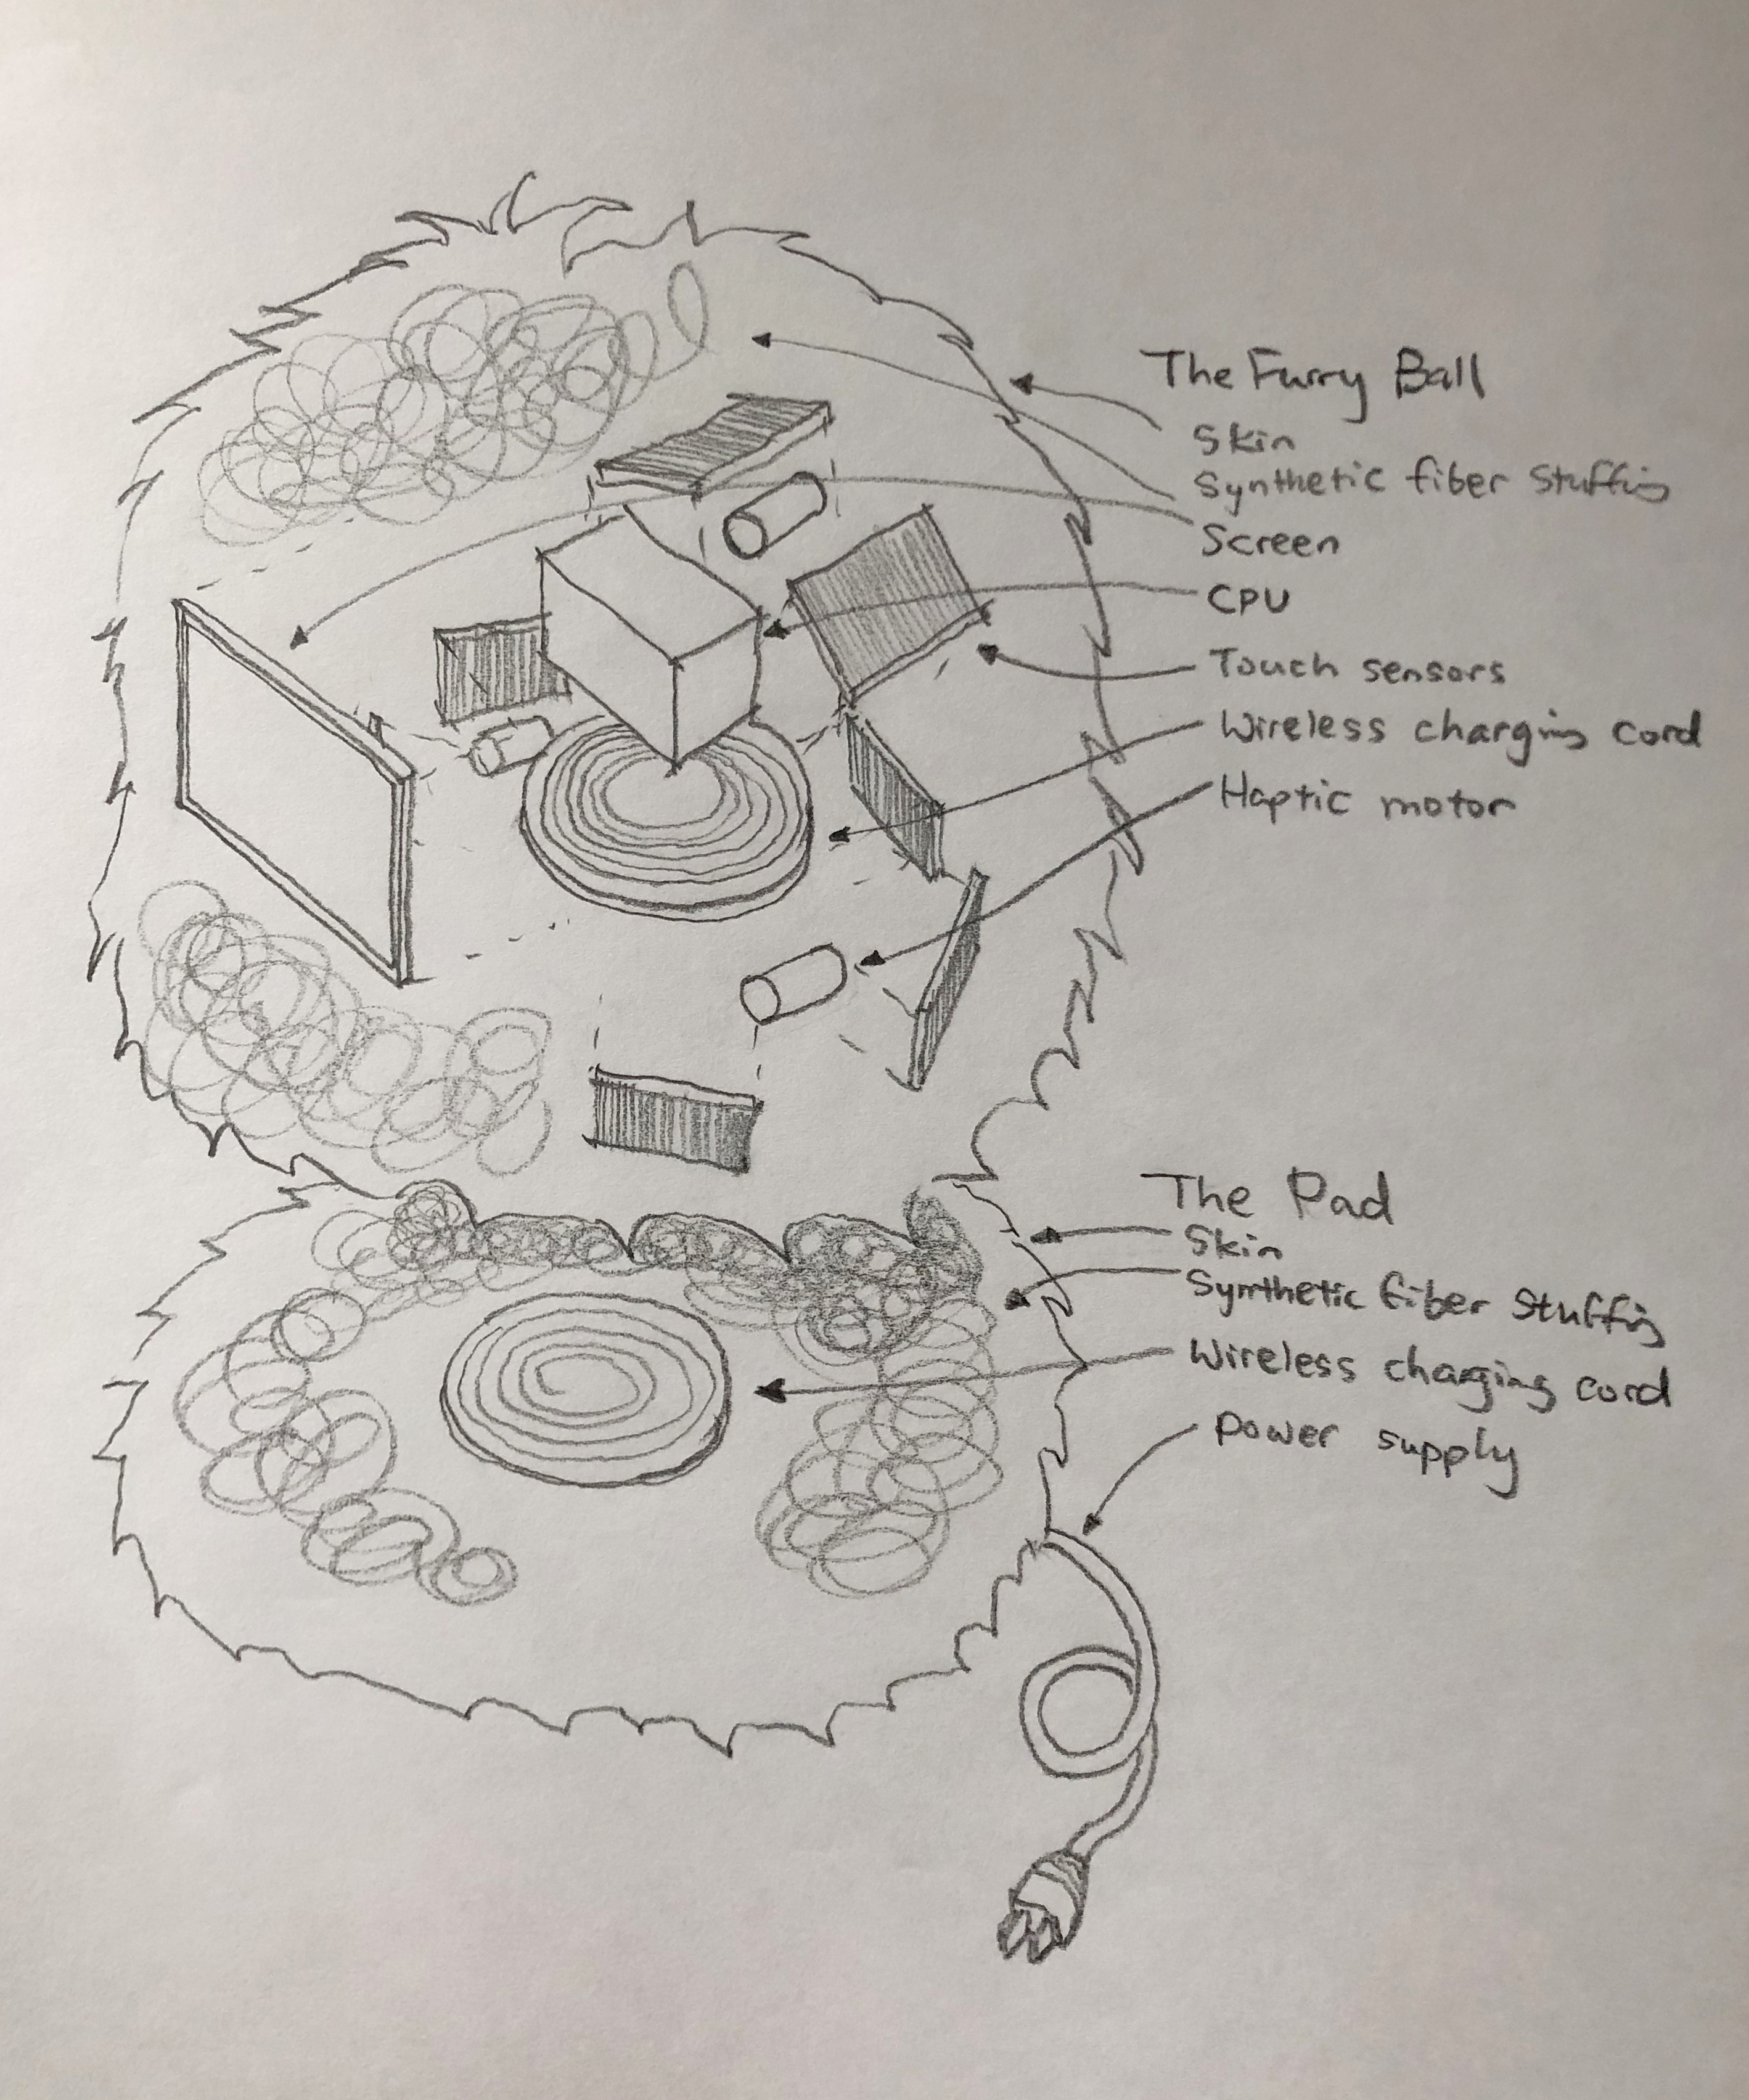 The Furry Ball
Skin
Synthetic fiber stuffing
Screen
CPU
Touch sensors
Wireless charging cord
Haptic motor
The Pad
Skin
Synthetic fiber stuffing
Wireless charging cord
power supply